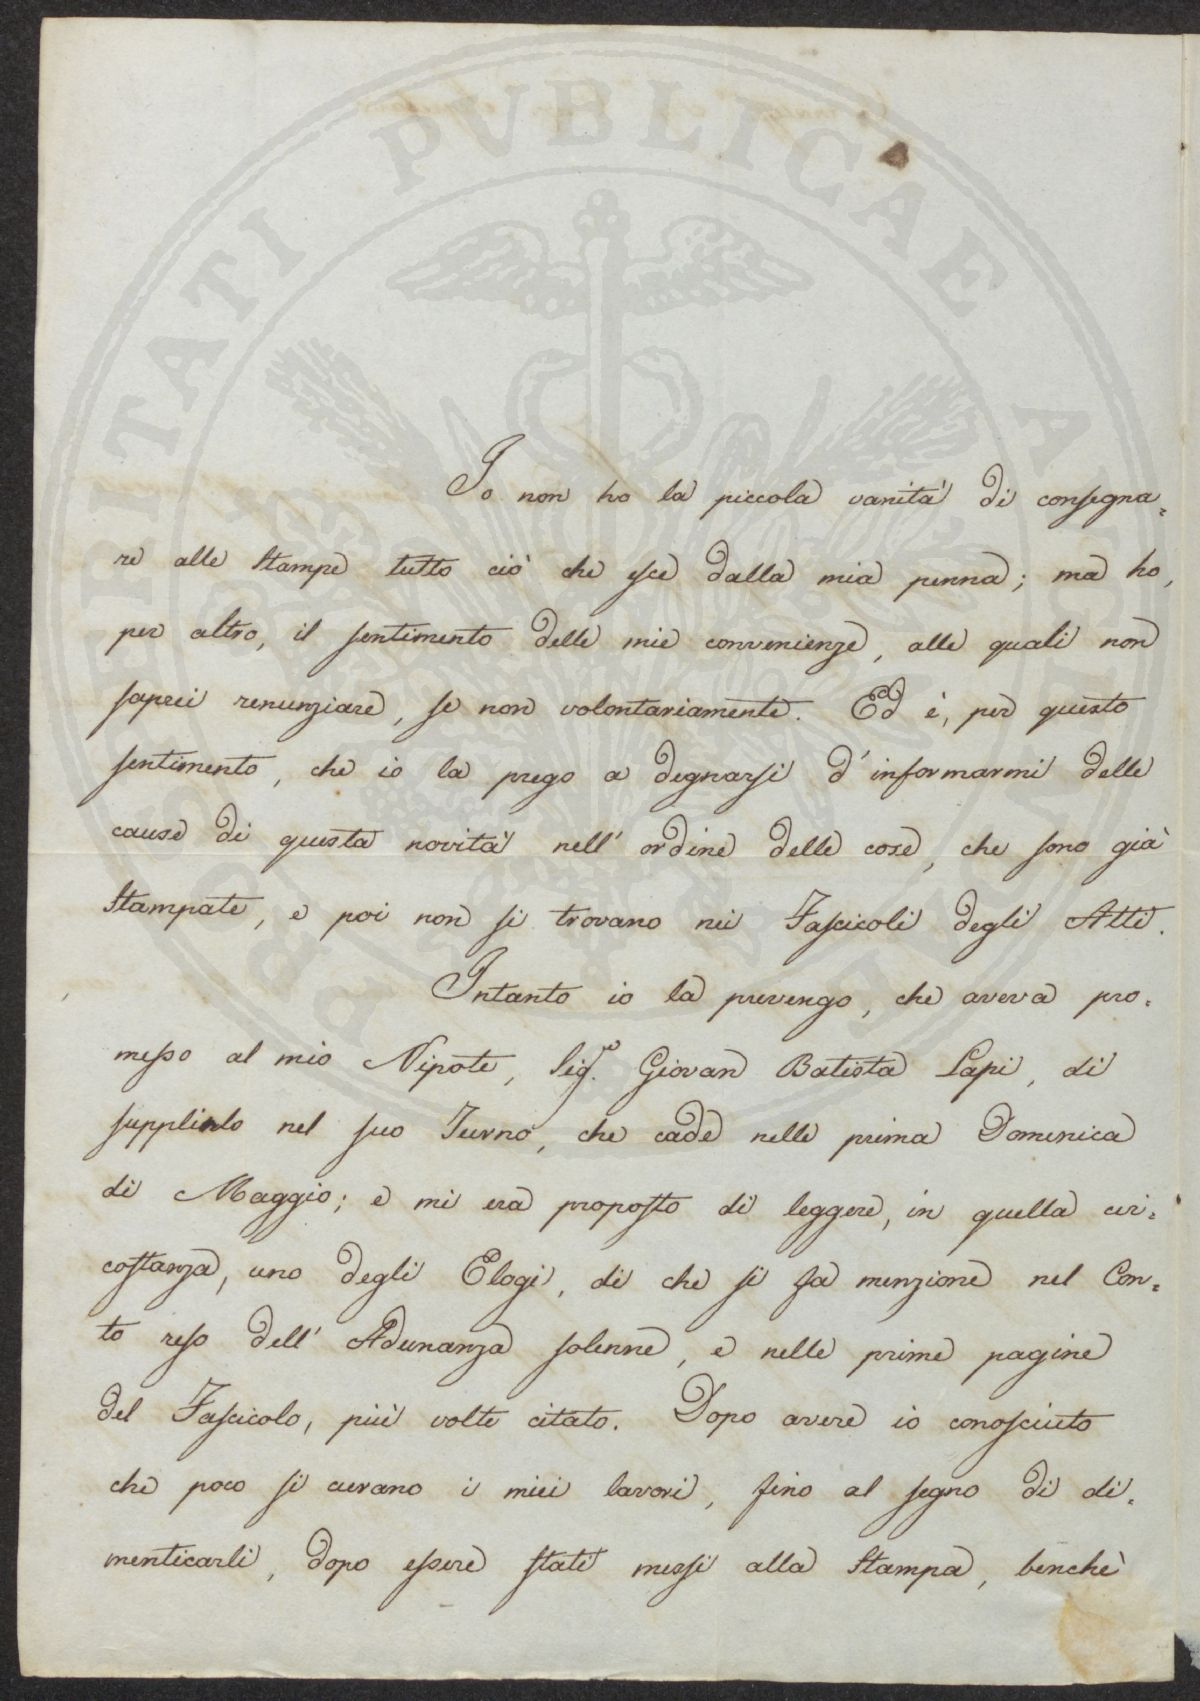 Io non ho la piccola vanità di consegna=
re alle Stampe tutto ciò che esce dalla mia penna; ma ho,
per altro, il sentimento delle mie convenienze, alle quali non
saprei renunziare, se non volontariamente. Ed è, per questo
sentimento, che io la prego a degnarsi d'informarmi delle
cause di questa novità nell'ordine delle cose, che sono già
Stampate, e poi non si trovano nei Fascicoli degli Atti.
Intanto io la prevengo, che aveva pro=
messo al mio Nipote, Sig.e Giovan Batista Lapi, di
supplirlo nel suo Turno, che cade nelle prima Domenica
di Maggio; e mi era proposto di leggere, in quella cir=
costanza, uno degli Elogi, di che si fa menzione nel Con=
to reso dell'Adunanza solenne, e nelle prime pagine
del Fascicolo, più volte citato. Dopo avere io conosciuto
che poco si curano i miei lavori, fino al segno di di=
menticarli, dopo essere stati messi alla Stampa, benchè
PVBLICAE